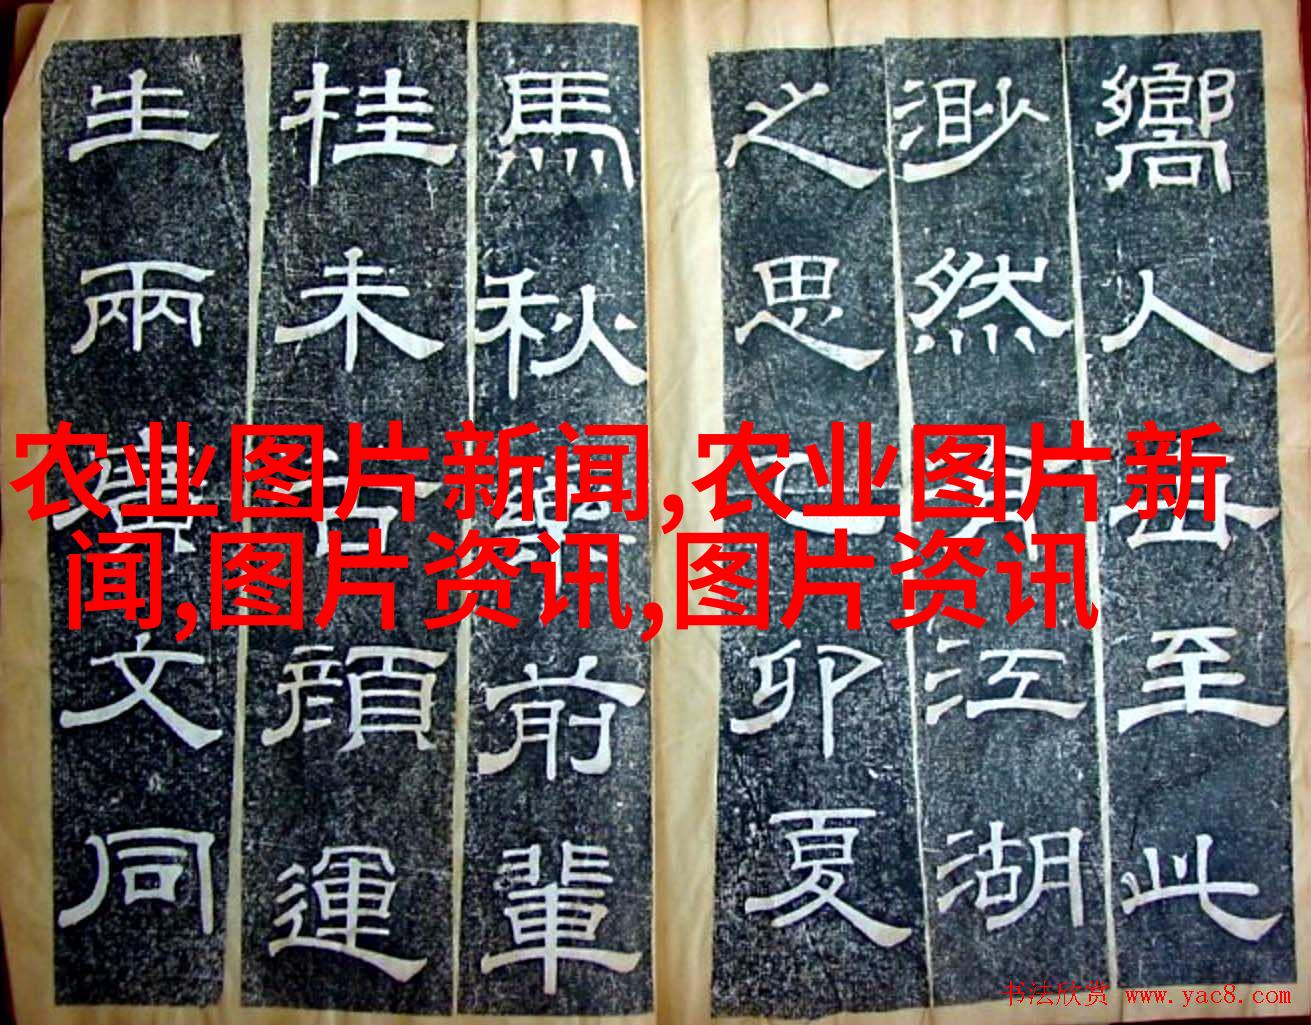 嚮人每至此
渺然有江湖
之思己卯夏
馬秋藥前輩
桂未谷顏運
生兩廣文同
农业图片新闻,农业图片新
闻,图片资讯,图片资讯
书法欣赏 www.yac8.com